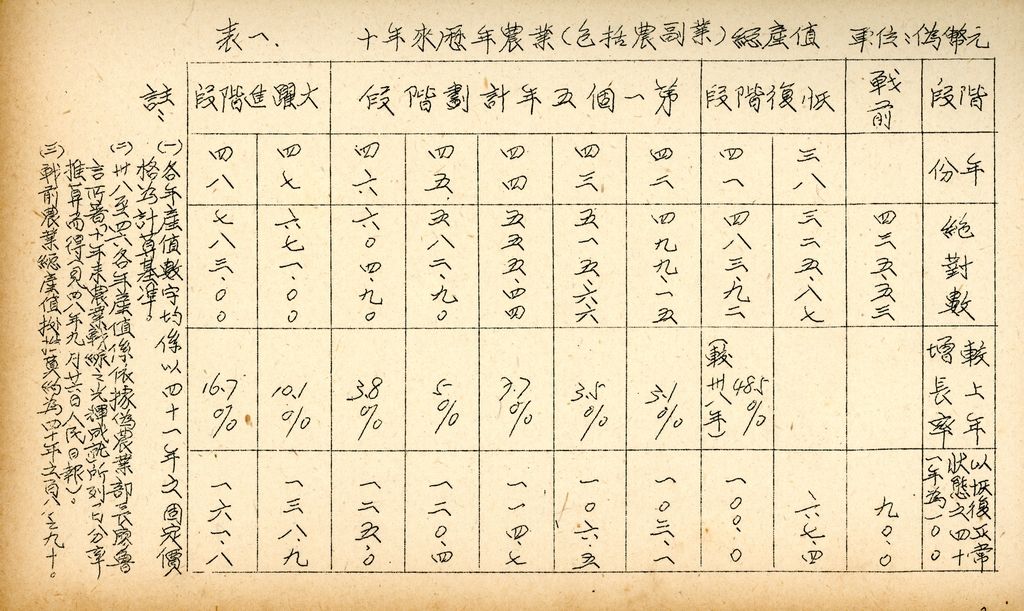 表一、 十年來歷年農業(包括農副業)總產值 單位：偽幣元
階段 戰前 恢復階段 第一個五年計劃階段 大躍進階段
年份 三八 四一 四二 四三 四四 四五 四六 四七 四八
絕對數 四三五.五三 三二五.八七 四八三.九二 四九九.一五 五一五.六六 五五五.四四 五八二.九〇 六〇四.九〇 六七一.〇〇 七八三.〇〇
較上年增長率 48.5% (較卅八年) 3.1% 3.5% 7.7% 5% 3.8% 10.1% 16.7%
以恢復正常狀態之四十一年為一〇〇 九〇.〇 六七.四 一〇〇.〇 一〇三.一 一〇六.五 一一四.七 一二〇.四 一二五.〇 一三八.九 一六一.八
註：
(一)各年產值數字均係以四十一年之固定價
格為計算基準。
(二)卅八至四六各年產值係依據偽農業部長廖魯
言所著「十年來農業戰線之光輝成就」所列百分率
推算而得(見四八年九月廿六日人民日報)。
(三)戰前農業總產值按